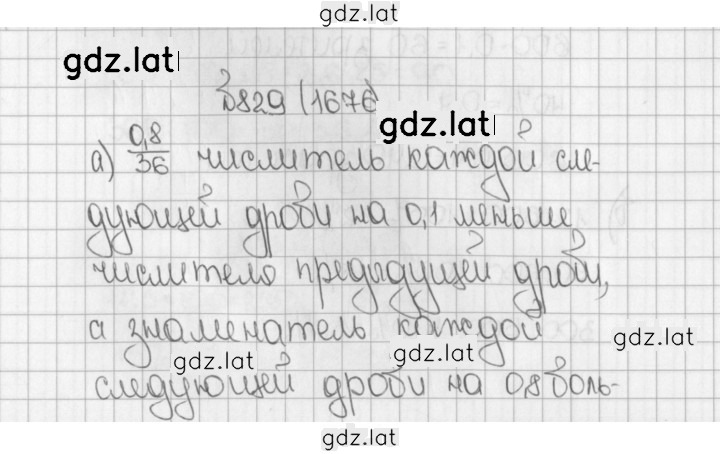 gdz.lat
gdz.lat
№829 (1676)
gdz.lat
а) 0,8/36 числитель каждой сле-
дующей дроби на 0,1 меньше
числителю предыдущей дроби,
а знаменатель каждой
gdz.lat
gdz.lat
gdz.lat
следующей дроби на 0,8 боль-
gdz.lat